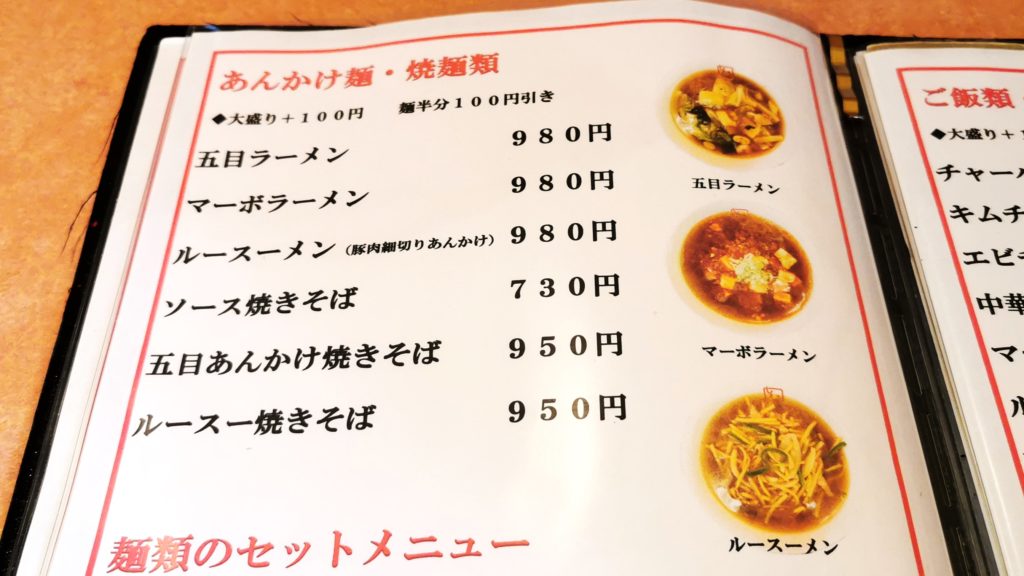 あんかけ麺・焼麺類
◆大盛り＋１００円　麺半分１００円引き
五目ラーメン　９８０円
マーボラーメン　９８０円
ルースーメン（豚肉細切りあんかけ）　９８０円
ソース焼きそば　７３０円
五目あんかけ焼きそば　９５０円
ルースー焼きそば　９５０円
麺類のセットメニュー
五目ラーメン
マーボラーメン
ルースーメン
ご飯類
◆大盛り＋
チャー
キムチ
エビ
中華
マ
ル